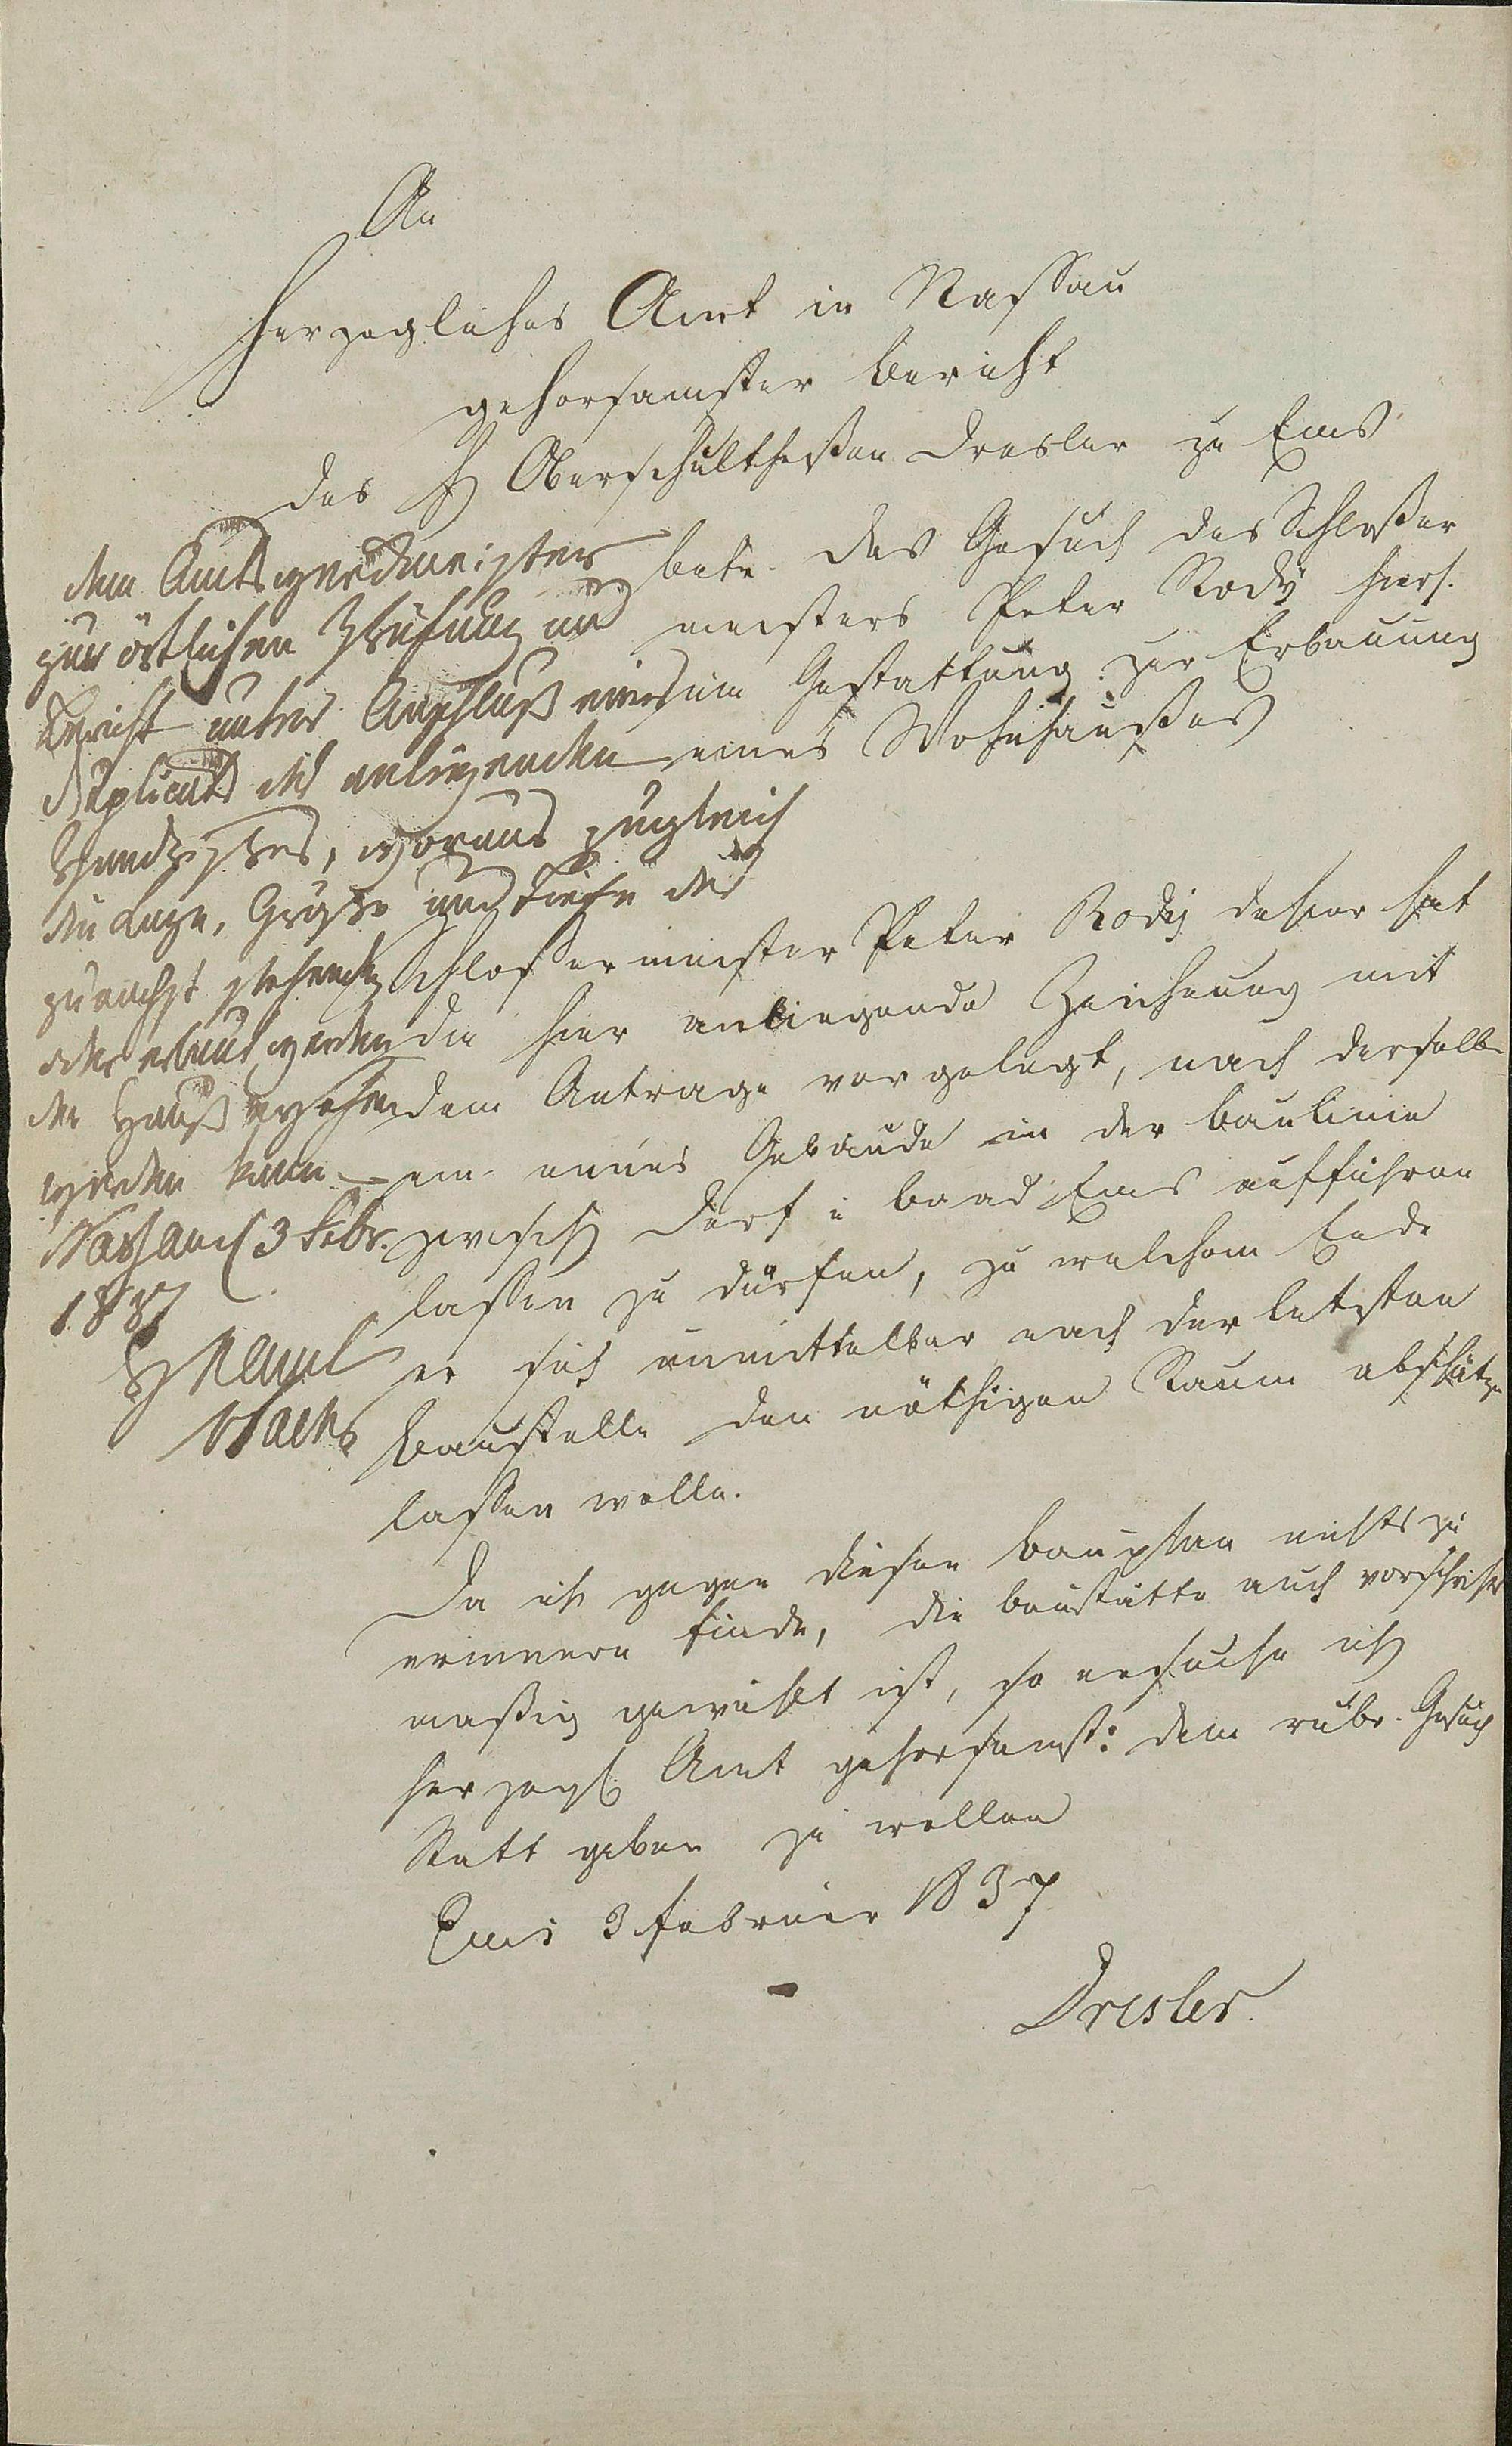 An
Herzogliches Amt in Nassau
gehorsamster Bericht
des H Oberschultheßen Dresler zu Ems
betr. das Gesuch des Schloßer
meisters Peter Rody hiers.
um Gestattung zur Erbauung
eines Wohnhaußes
dem Amtswerkmeister
zur örtlichen Prüfung und
Bericht unter Anschluß eines
Duplicats des anliegenden
Handrißes, woraus zugleich
die Lage, Größe und Tiefe des
zunächst stehenden
oder erbaut werden
den Hauß ersehen
werden kann.
Nassau 3 Febr.
1837
H N Amt
Schloßermeister Peter Rody dahier hat
die hier anliegende Zeichnung mit
dem Antrage vorgelegt, nach derselben
ein neues Gebäude in der Baulinie
zwisch Dorf u Baad Ems aufführen
lassen zu dürfen, zu welchem Ende
er sich unmittelbar nach der letzten
Baustelle den nöthigen Raum abschätzen
lassen wolle.
Da ich gegen diesen Bauplan nichts zu
erinnern finde, die Baustätte auch vorschrifts
maßig gewählt ist, so ersuche ich
Herzogl Amt gehorsamst: dem rubr. Gesuch
Statt geben zu wollen
Ems 3 Februar 1837
Dresler.